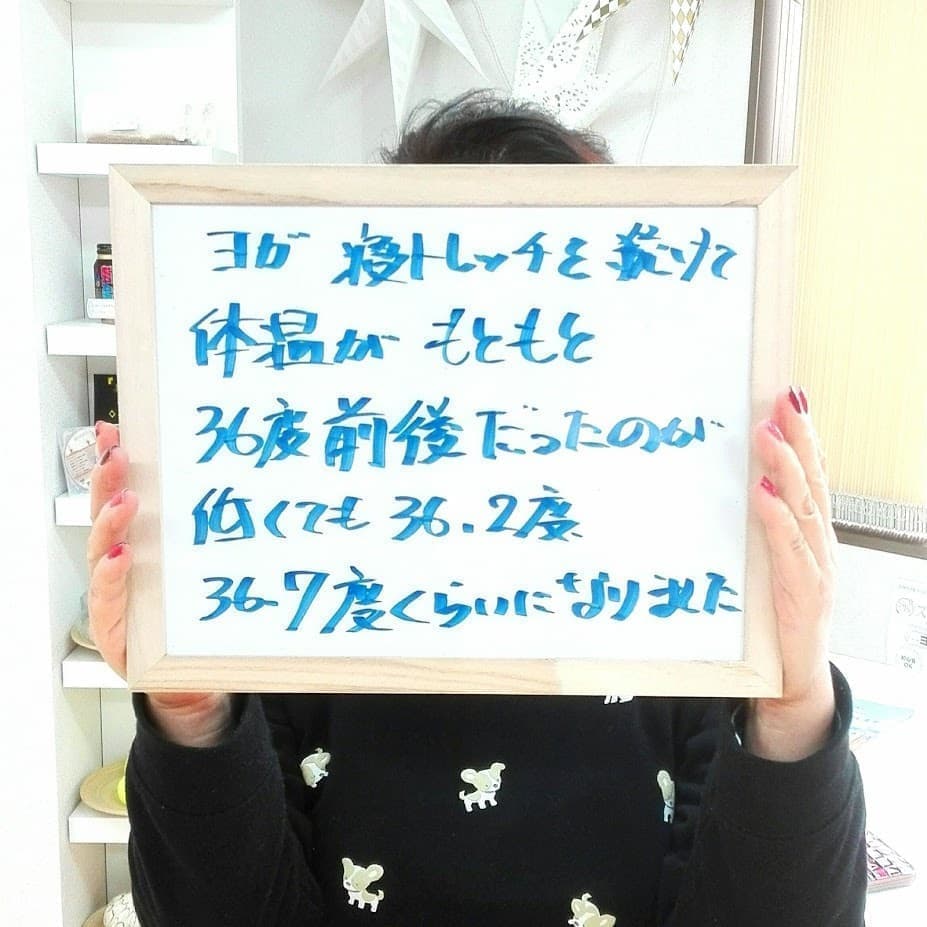 ヨガ 寝トレッチを続けて
体温が もともと
36度前後だったのが
低くても 36.2度
36.7度くらいになりました